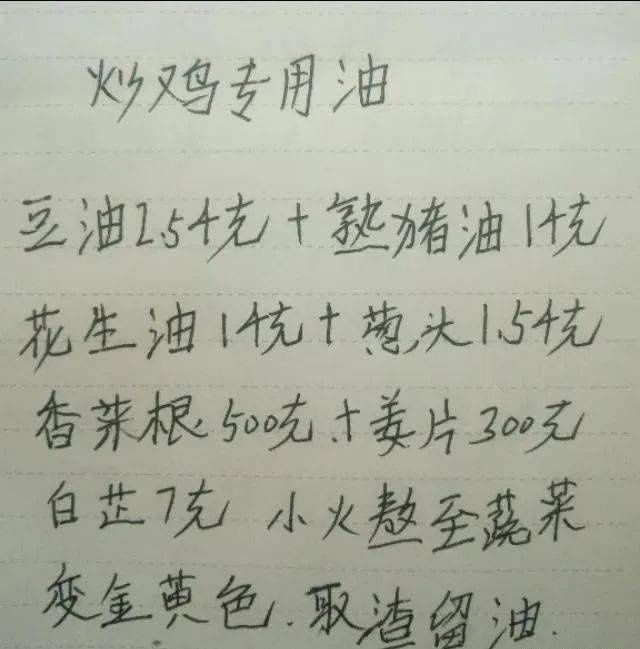 炒鸡专用油
豆油2.5千克+熟猪油1千克
花生油1千克+葱头1.5千克
香菜根500克+姜片300克
白芷7克 小火熬至蔬菜
变金黄色.取渣留油.